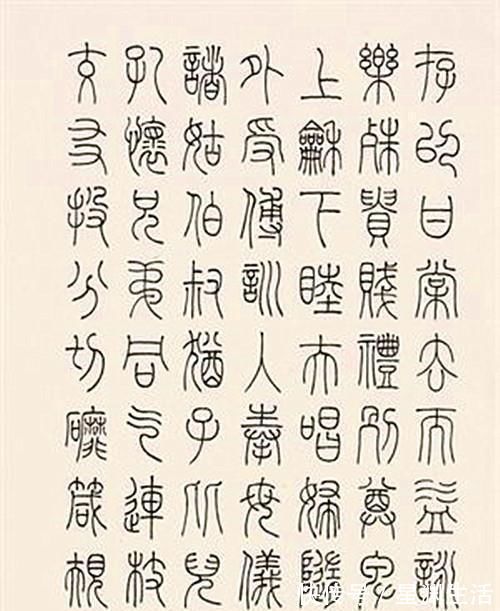 存以甘棠去而益詠
樂殊貴賤禮別尊卑
上龢下睦夫唱婦隨
外受傅訓入奉母儀
諸姑伯叔猶子比兒
孔懷兄弟同气連枝
交友投分切磨箴規
快传号/星渊生活